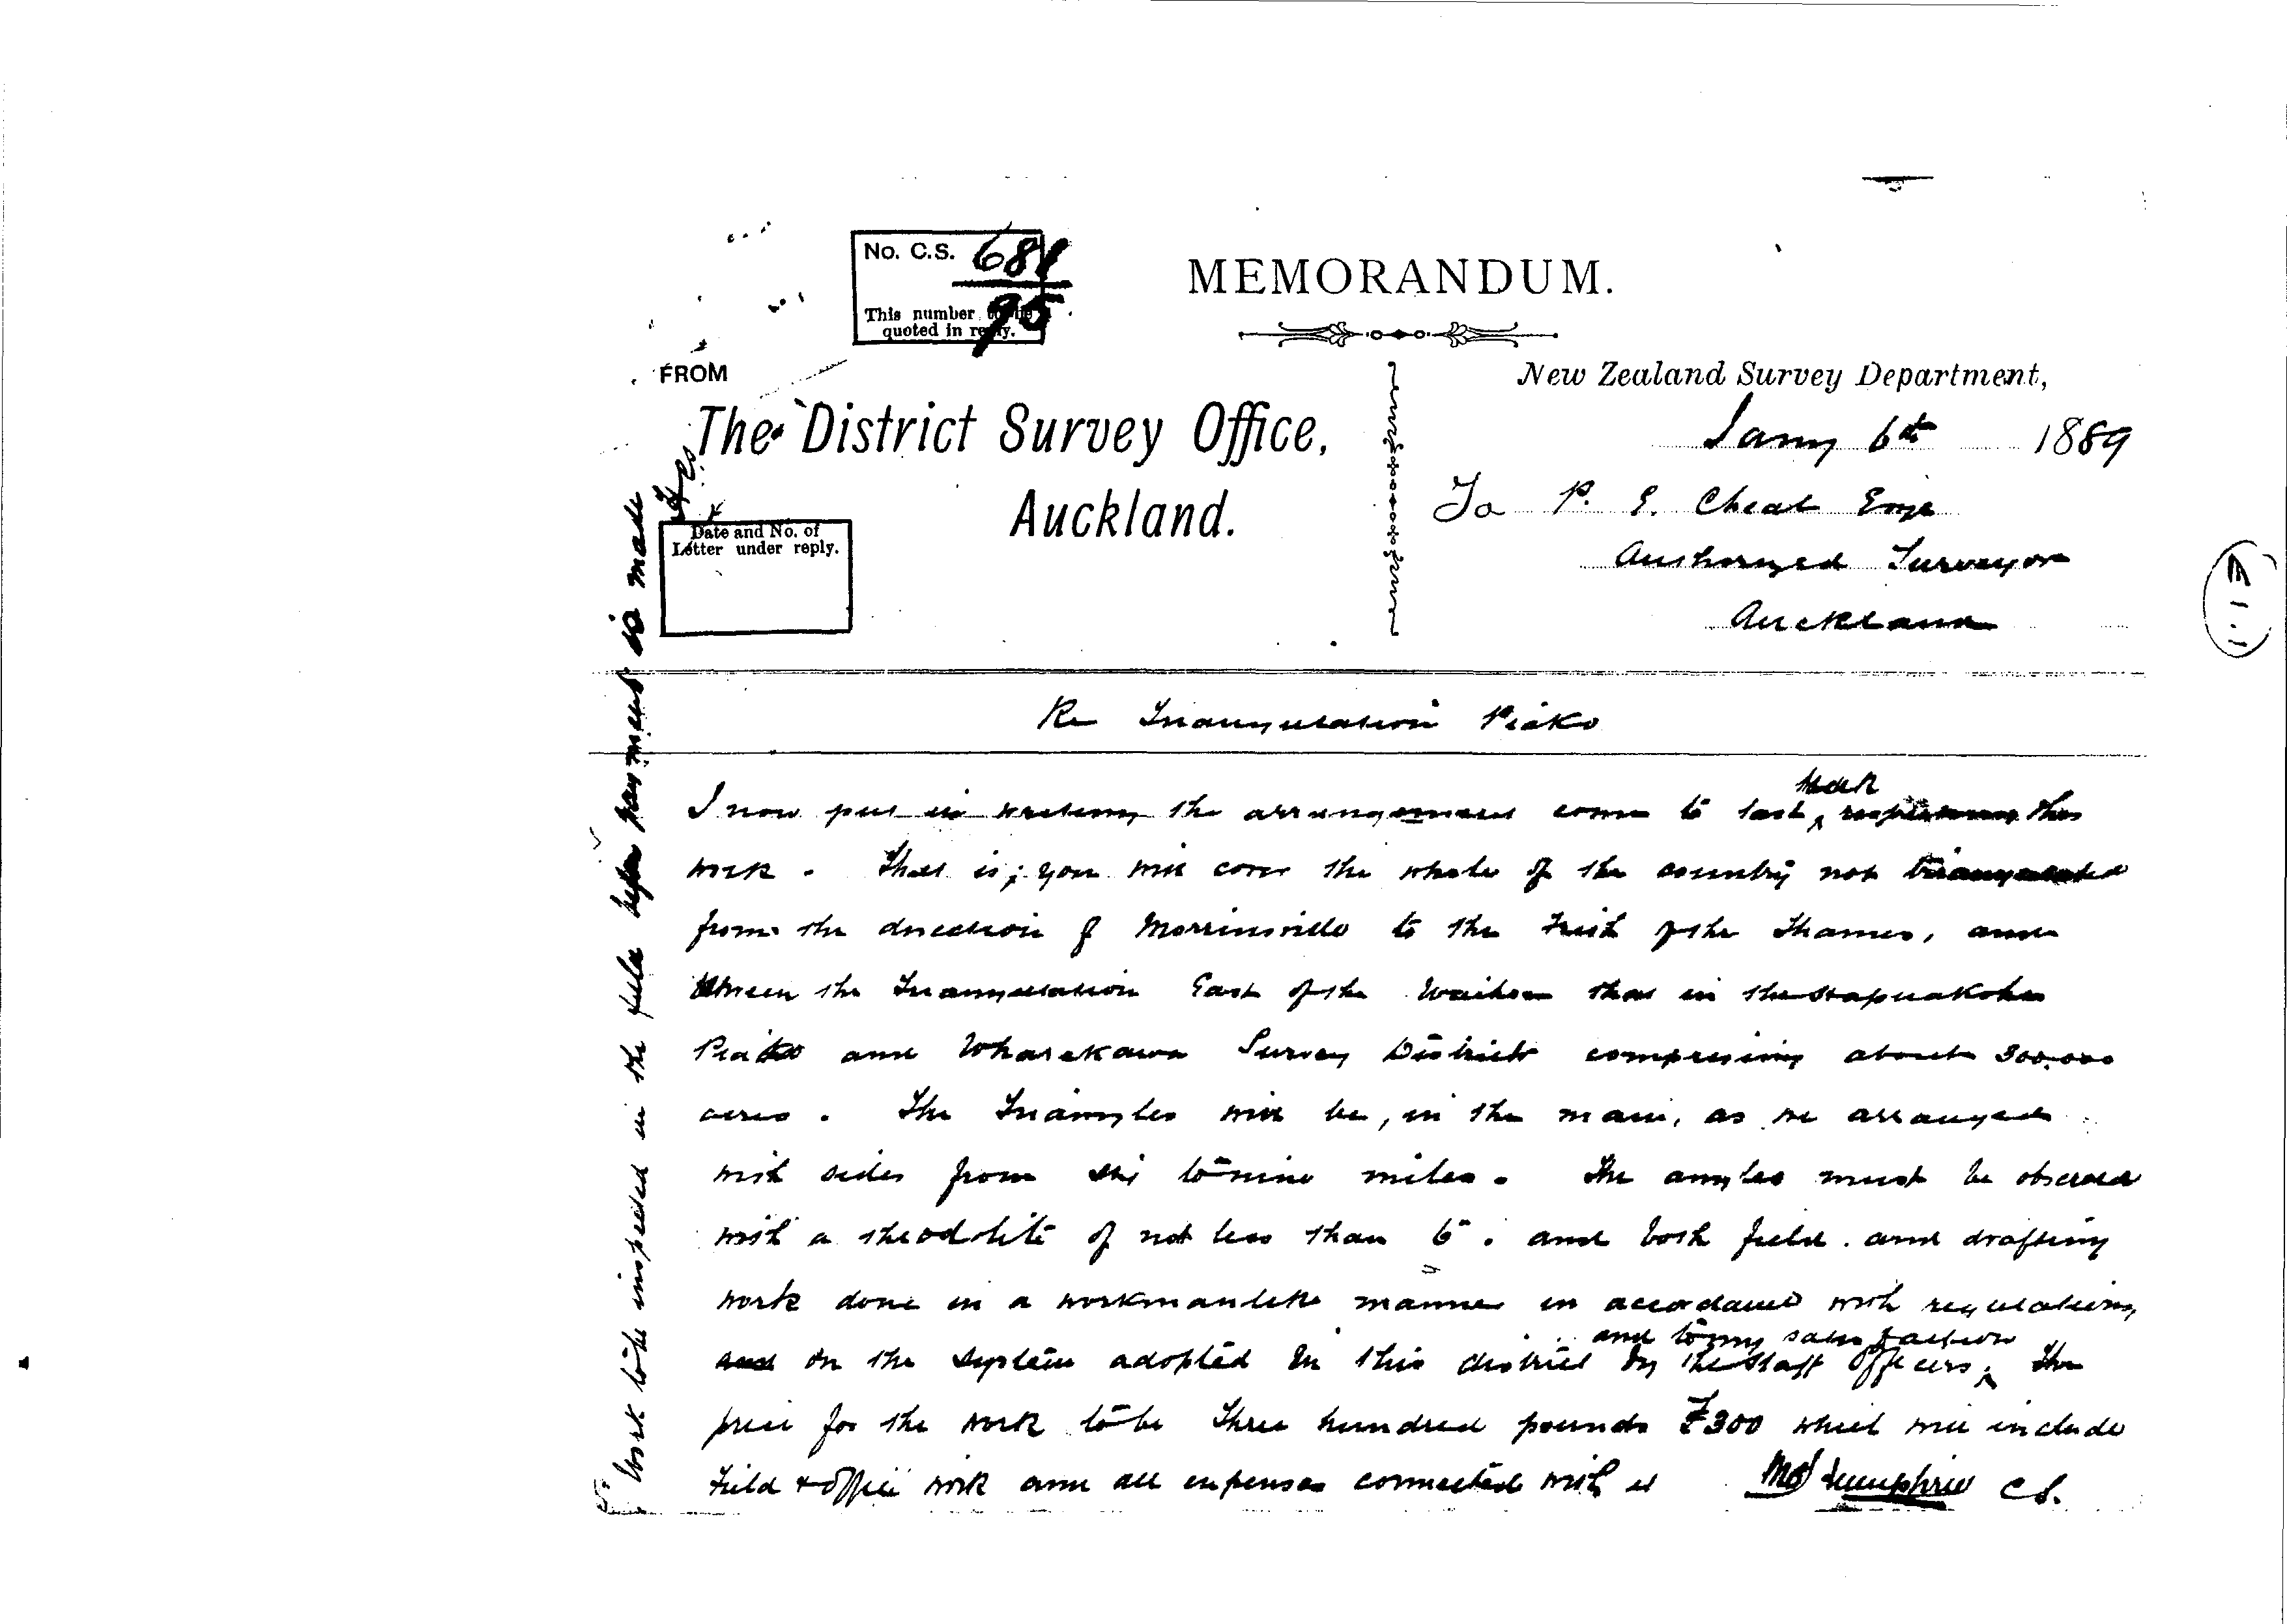 No. C.S. 681
95
This number to be
quoted in reply.
MEMORANDUM.
FROM
The District Survey Office,
Auckland.
New Zealand Survey Department,
Jany 6th 1889
To P. E. Cheal Esqr
Authorized Surveyor
Auckland
Date and No. of
Letter under reply.
Re Triangulation Piako
I now put in writing the arrangement come to last week respecting this
work. That is; you will cover the whole of the country not triangulated
from the direction of Morrinsville to the Frith of the Thames, and
between the Triangulation East of the Waihou that in the Hapuakohe
Piako and Wharekawa Survey Districts comprising about 300,000
acres. The Triangles will be, in the main, as we arranged
with sides from six to nine miles. The angles must be observed
with a theodolite of not less than 6". and both field and drafting
work done in a workmanlike manner in accordance with regulations,
and on the system adopted in this district by the Staff Officers, and to my satisfaction the
price for the work to be three hundred pounds £300 which will include
Field & Office work and all expenses connected with it Humphries C.S.
Work to be inspected in the field before payment is made